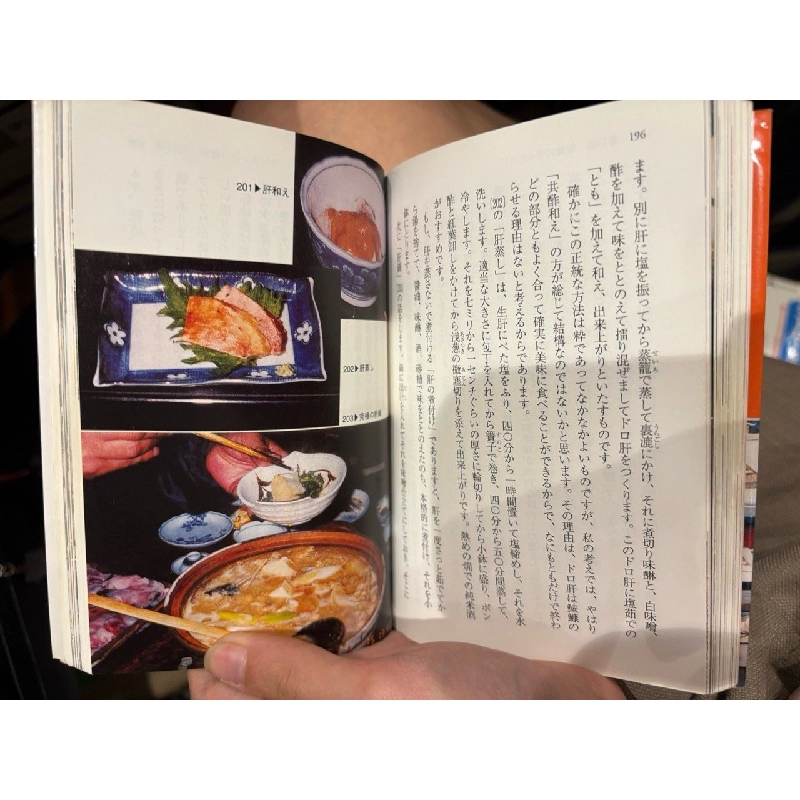 196
ます。別に肝に塩を振ってから蒸籠で蒸して裏漉にかけ、それに煮切り味醂と、白味噌、
酢を加えて味をととのえて擂り混ぜましてドロ肝をつくります。このドロ肝に塩茹での
「とも」を加えて和え、出来上がりといたすものです。
確かにこの正統な方法は粋であってなかなかよいものですが、私の考えでは、やはり
「共酢和え」の方が総じて結構なのではないかと思います。その理由は、ドロ肝は鮟鱇の
どの部分ともよく合って確実に美味に食べることができるからで、なにもともだけで終わ
らせる理由はないと考えるからであります。
(202)の「肝蒸し」は、生肝にべた塩をふり、四〇分から一時間置いて塩締めし、それを水
洗いします。適当な大きさに包丁を入れてから簀子で巻き、四〇分から五〇分間蒸して、
冷やします。それを七ミリから一センチぐらいの厚さに輪切りしてから小鉢に盛り、ポン
酢と紅葉卸しをかけてから浅葱の微塵切りを添えて出来上がりです。熱めの燗での純米酒
がおすすめです。
もし、肝を蒸さないで煮付ける「肝の煮付け」でありますと、肝を一度さっと茹でてか
ら湯を捨てて、醬油、味醂、酒、砂糖で味をととのえたのち、本格的に煮付け、それを小
鉢にとります。
次に「肝鍋」(203)の話をします。
201▶肝和え
202▶肝蒸し
203▶